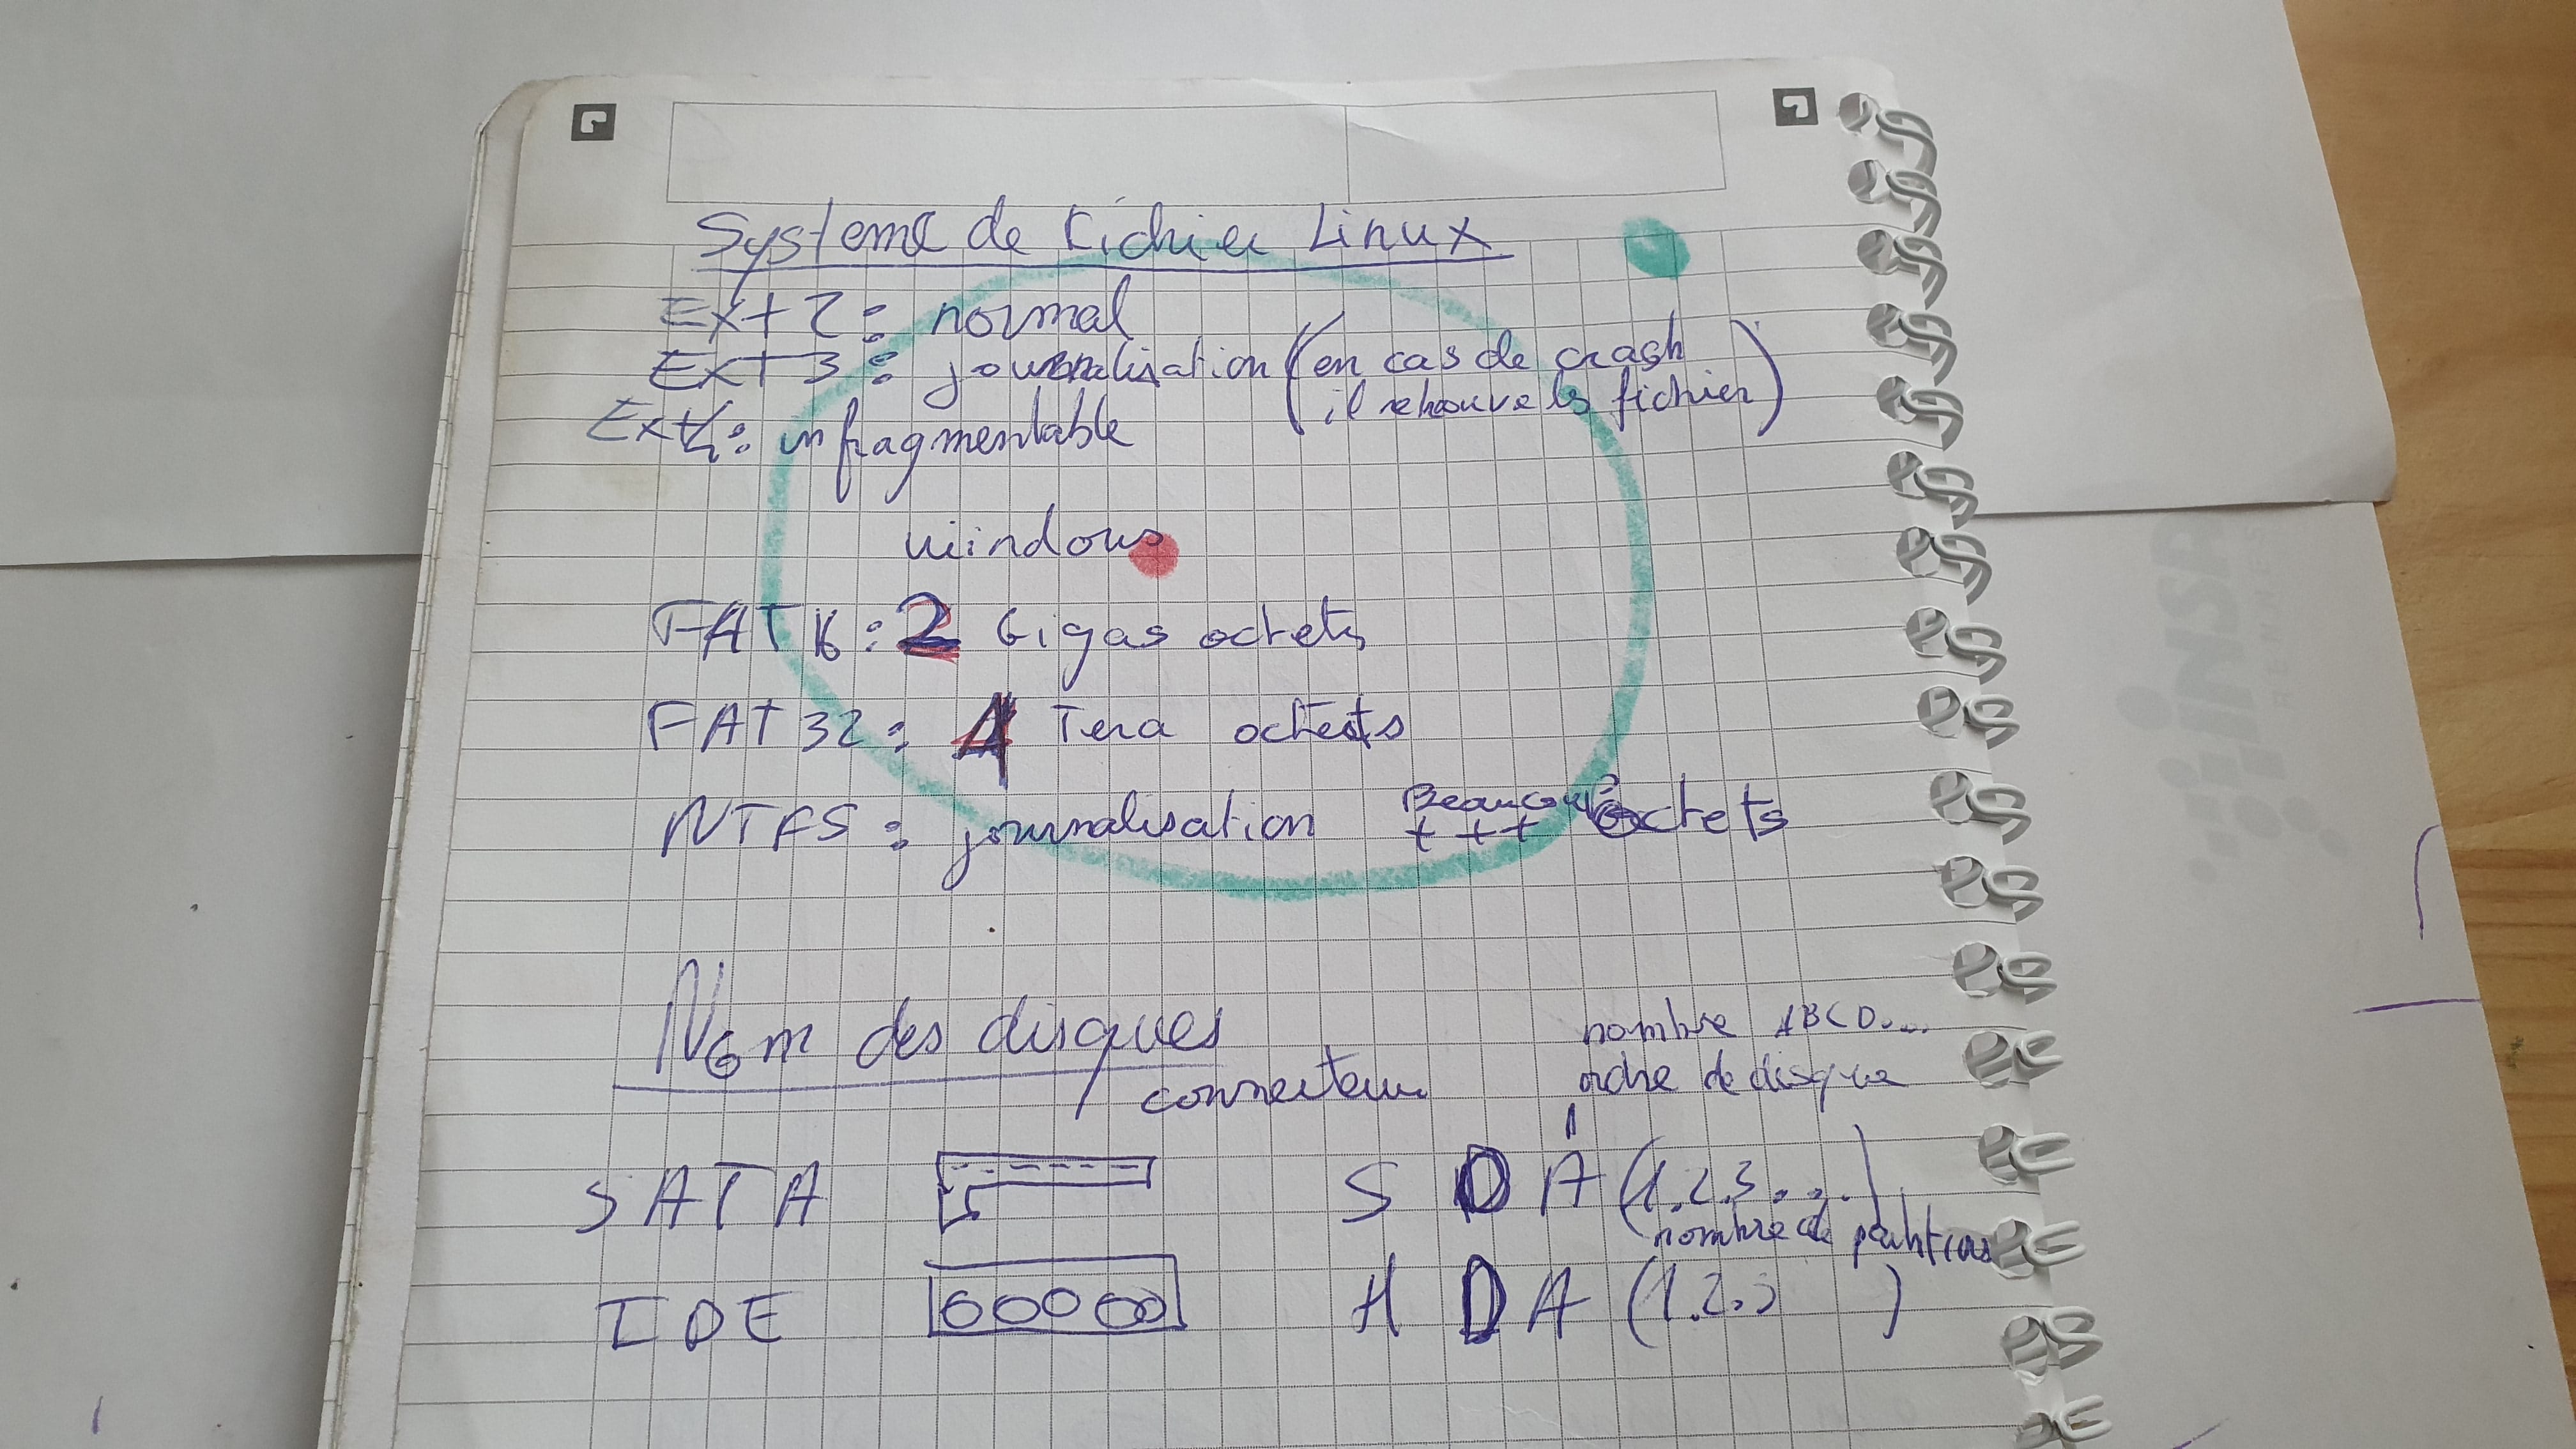 Systeme de Fichier Linux
Ext 2 : normal
Ext 3 : journalisation (en cas de crash
il retrouve ls fichier)
Ext4 : infragmentable
windows
FAT 16 : 2 Gigas octets
FAT 32 : 4 Tera octets
NTFS : journalisation +++ octets
Beaucoup
Nom des disques
connecteur
nombre ABCD...
ordre de disque
SATA S D A (1.2.3...)
nombre de partitions
IDE H D A (1.2.3 )